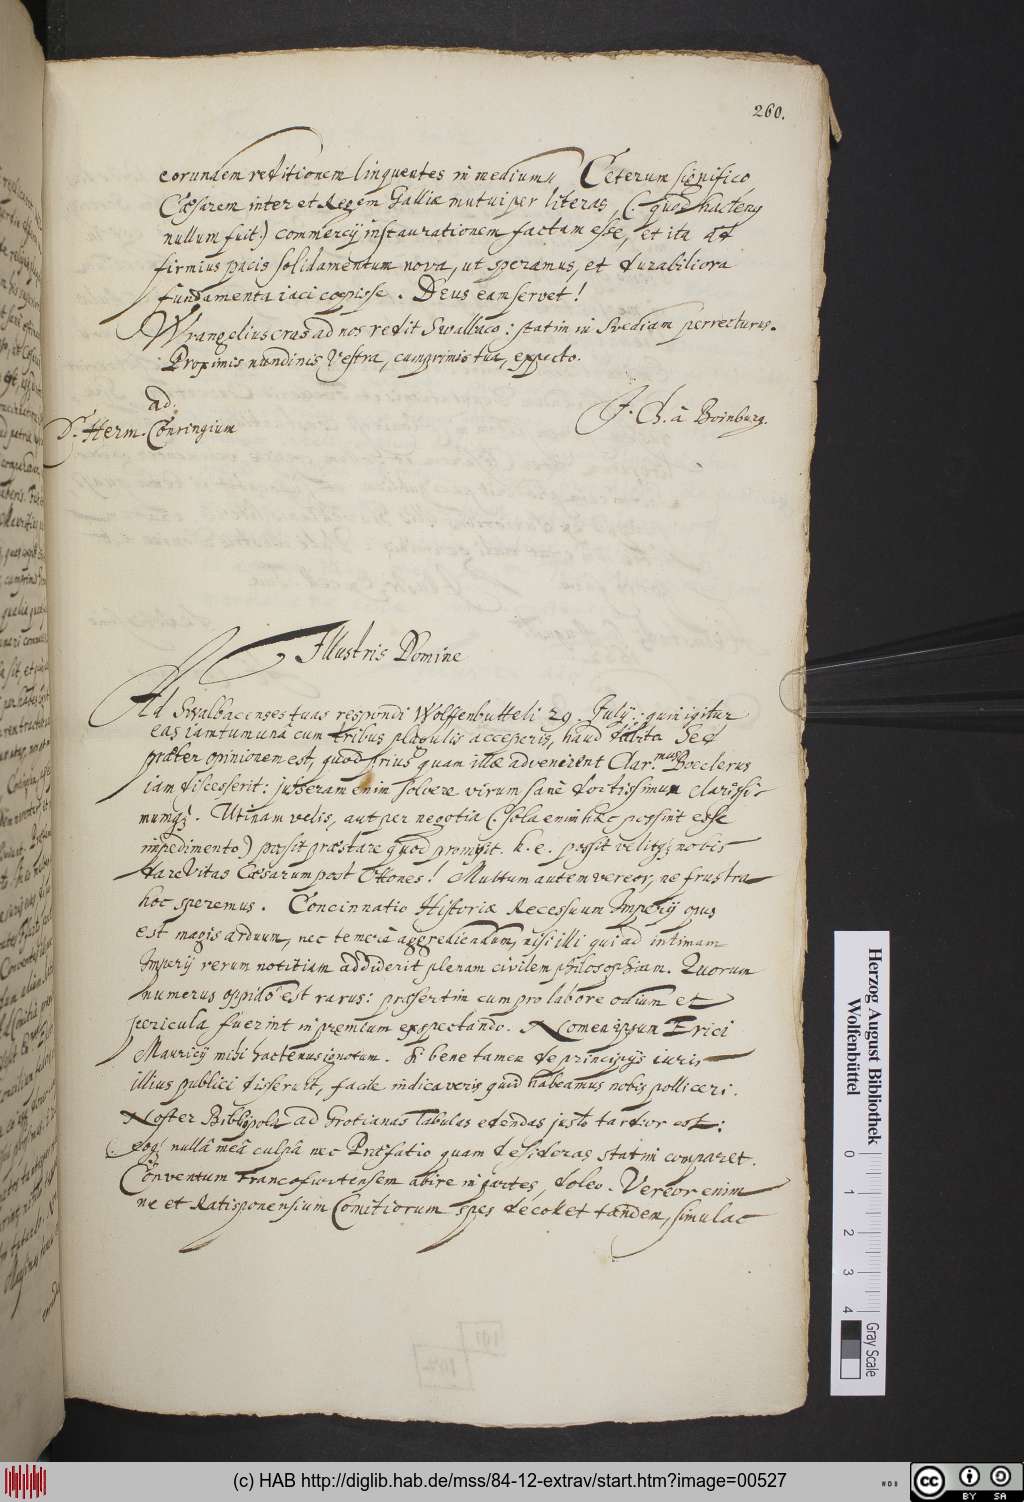 260.
eorundem reditionem linquentes in medium. Ceterum significo
Cæsarem inter et Regem Galliæ mutui per literas, (: quod hactenus
nullum fuit:) commercij instaurationem factam esse, et ita ad
firmius pacis solidamentum nova, ut speramus, et durabiliora
fundamenta iaci cœpisse. Deus eam servet!
Wrangelius cras ad nos redit Swalbaco: statim in Svediam perrecturus.
Proximis nundinis Vestra, cumprimis tua, expecto.
ad.
J. Ch. à Boinburg.
Dn. Herm. Conringium
Illustris Domine
Ad Swalbacenses tuas respondi Wolffenbutteli 29. Julij: quin igitur
eas iam tum unà cum tribus plagulis acceperis, haud dubito. Sed
præter opinionem est, quod prius quam illæ advenirent Clar.mus Boeclerus
iam discesserit: jusseram enim solvere virum sanè doctissimum clarissi-
mumq;. Utinam velis, aut per negotia (: sola enim hæc possint esse
impedimento) possit præstare quod promisit. h. e. possit velitq; nobis
dare Vitas Cæsarum post Ottones! Multum autem vereor, ne frustra
hoc speremus. Concinnatio Historiæ Recessuum Imperij opus
est magis arduum, nec temerè aggrediendum, nisi illi qui ad intimam
Imperij rerum notitiam addiderit plenam civilem philosophiam. Quorum
numerus oppidò est rarus: præsertim cum pro labore odium et
pericula fuerint in premium exspectando. Nomen ipsum Erici
Mauricij mihi hactenus ignotum. Si bene tamen de principijs iuris
illius publici disseruit, facile indicaveris quid habeamus nobis polliceri.
Noster Bibliopola ad Grotianas Tabulas edendas justo tardior est:
eoq; nullâ meâ culpâ nec Præfatio quam desideras statim comparet.
Conventum Francofurtensem abire in partes, doleo. Vereor enim
ne et Ratisponensium Comitiorum spes decollet tandem, simulac
Herzog August Bibliothek
Wolfenbüttel
0 1 2 3 4
Gray Scale
(c) HAB http://diglib.hab.de/mss/84-12-extrav/start.htm?image=00527
cc BY SA